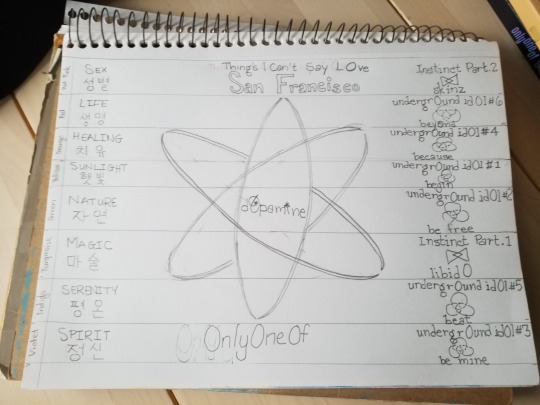 Things I Can't Say LOve
San Francisco
SEX
성별
LIFE
생명
HEALING
치유
SUNLIGHT
햇빛
NATURE
자연
MAGIC
마술
SERENITY
평온
SPIRIT
정신
Indigo
Violet
dOpamine
OnlyOneOf
Instinct Part.2
skinz
undergrOund idOl #6
beyOnd
undergrOund idOl #4
because
undergrOund idOl #1
begin
undergrOund idOl #2
be free
Instinct Part.1
libidO
undergrOund idOl #5
beat
undergrOund idOl #3
be mine